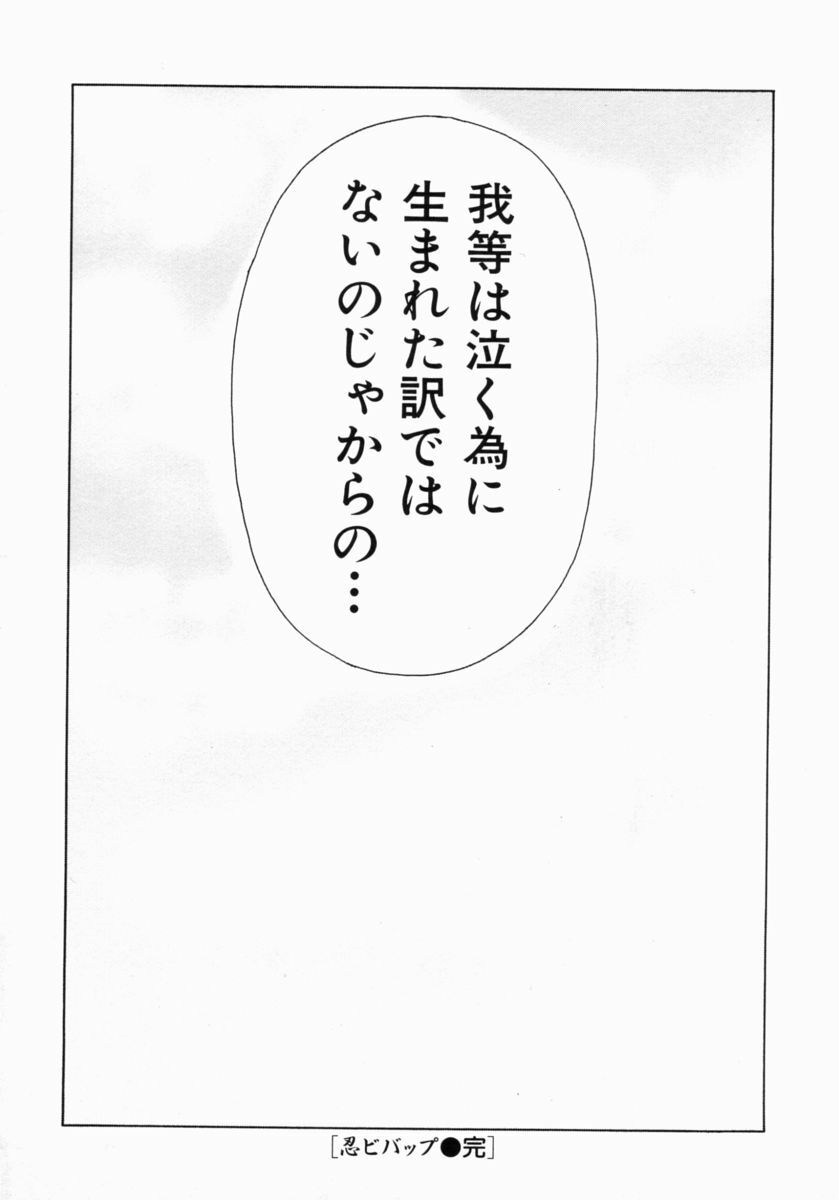 我等は泣く為に
生まれた訳では
ないのじゃからの…
[忍ビバップ●完]